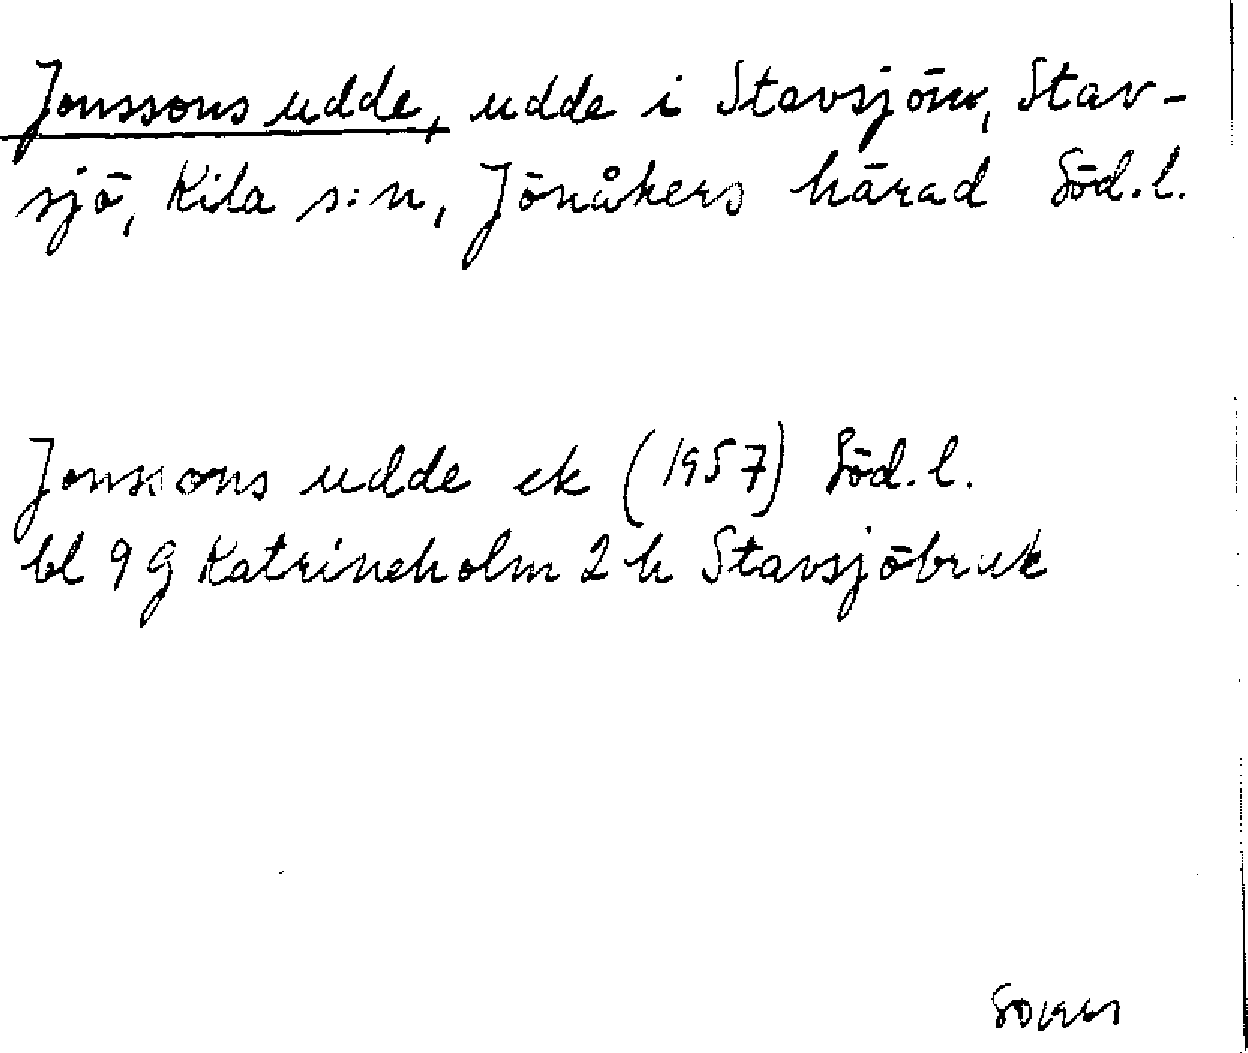 Jonssons udde, udde i Stavsjön, Stav-
sjö, Kila s:n, Jönåkers härad Söd.l.
Jonssons udde ek (1957) Söd.l.
bl 9 G Katrineholm 2 h Stavsjöbruk